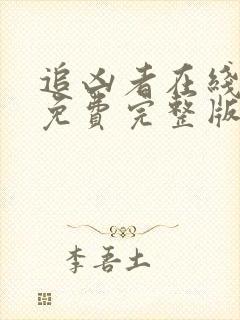 追凶者在线
免费完整版
李吾土